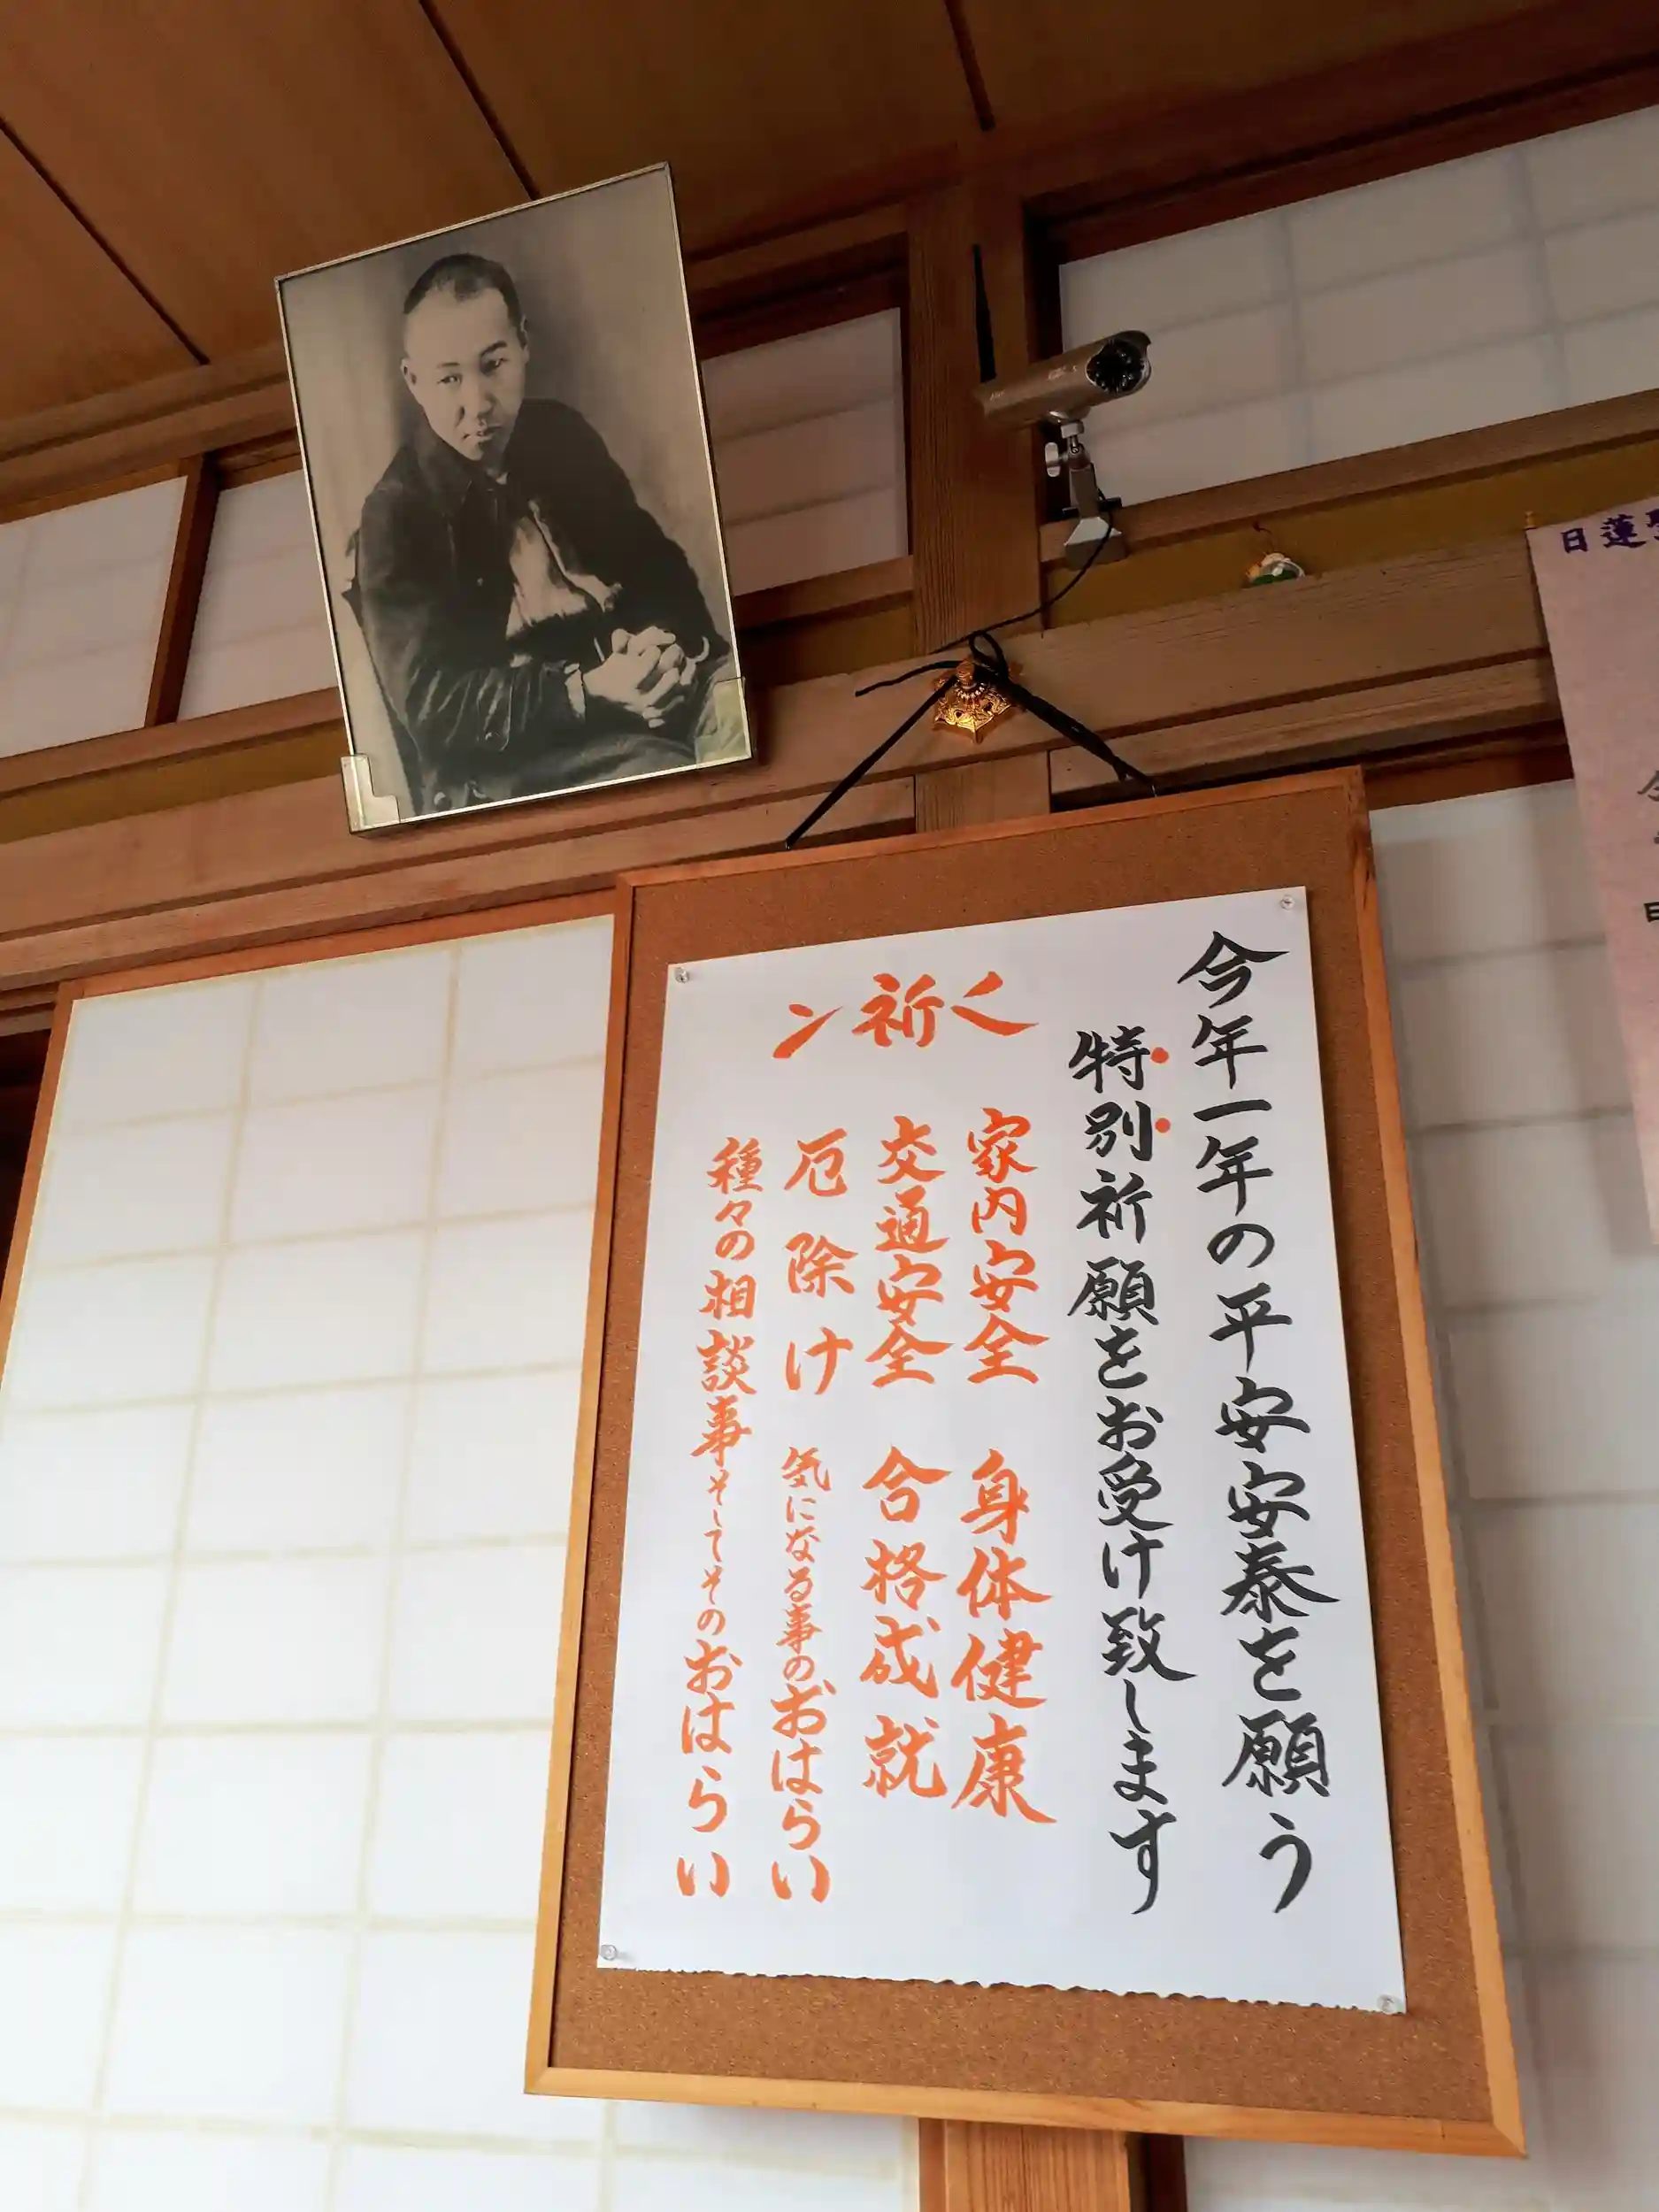 今年一年の平安安泰を願う
特別祈願をお受け致します
祈
家内安全 身体健康
交通安全 合格成就
厄除け 気になる事のおはらい
種々の相談事そしてそのおはらい
日蓮